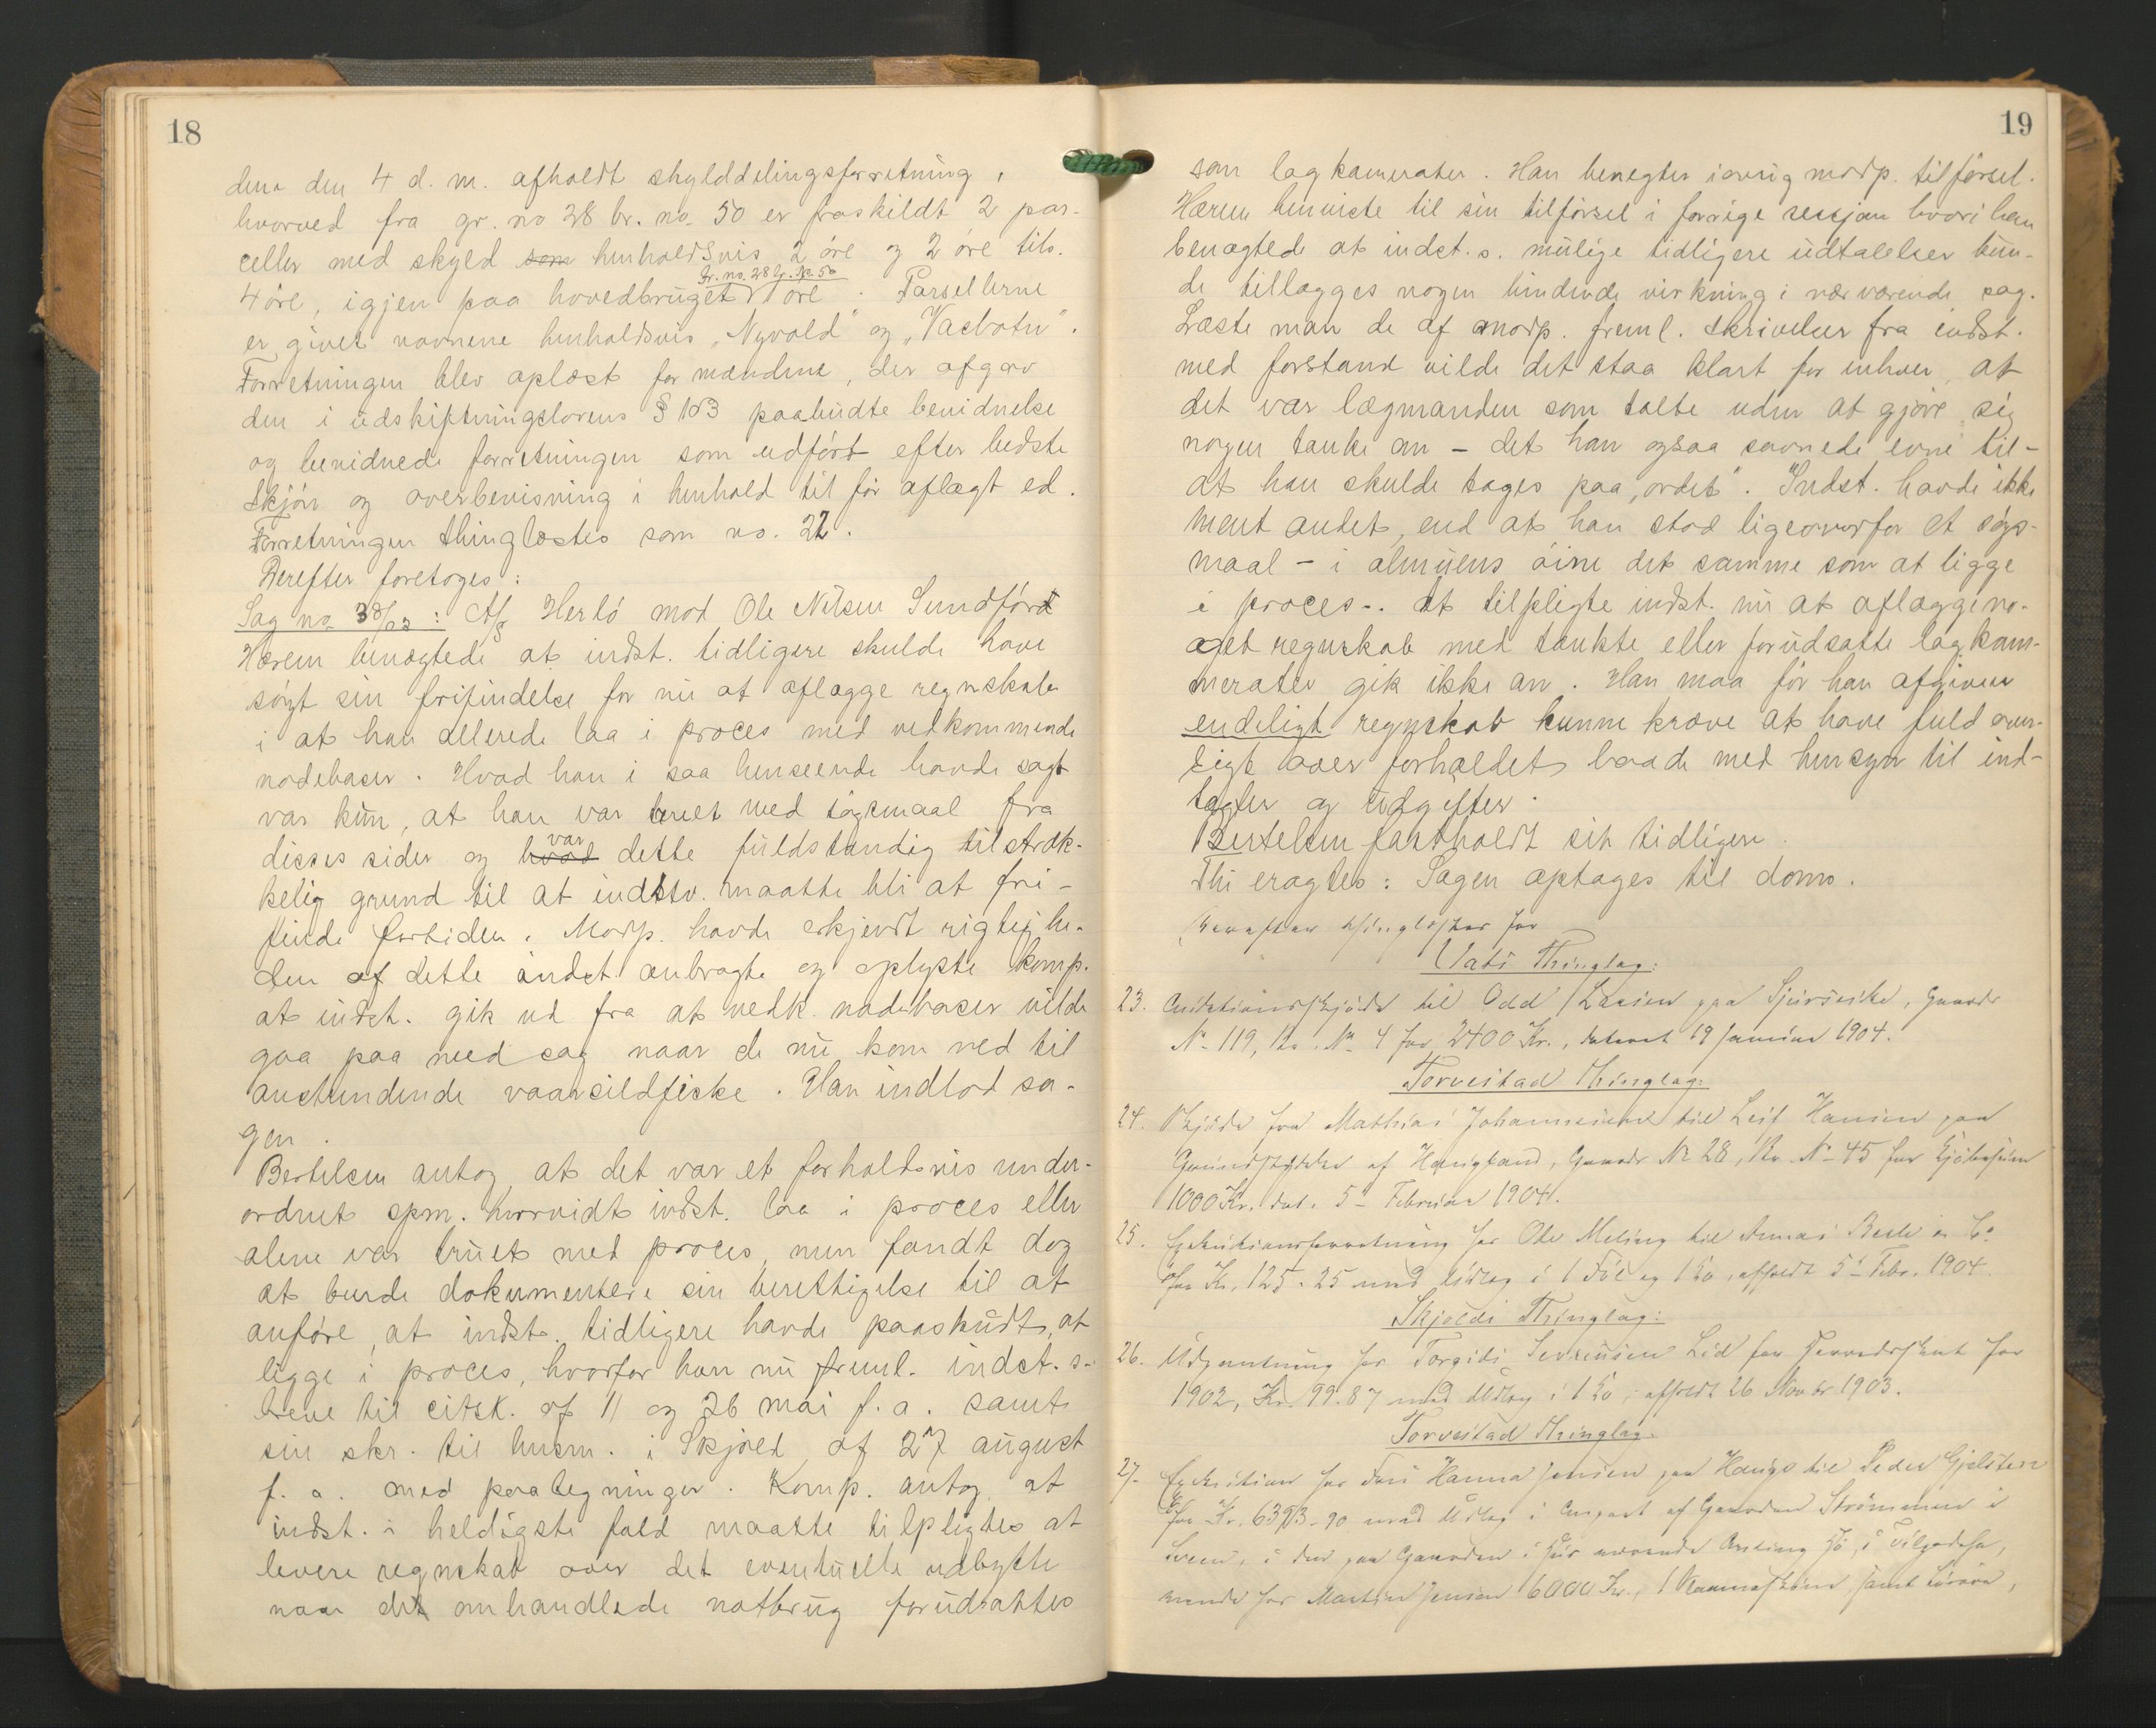 18
dena den 4 d. m. afholdt skylddelingsforretning,
hvorved fra gr. no 28 br. no. 50 er fraskildt 2 par-
celler med skyld som henholdsvis 2 öre og 2 öre tils.
gr. no. 28 br. no. 50
4 öre, igjen paa hovedbruget öre. Parsellerne
er givet navnene henholdsvis „Nyvold" og „Vaebotn".
Forretningen blev oplæst for mændene, der afgav
den i udskiftningslovens § 103 paabudte bevidnelse
og bevidnede forretningen som udført efter bedste
skjön og overbevisning i henhold til för aflagt ed.
Forretningen thinglæstes som no. 22.
Derefter foretoges:
Sag no 38/03: A/S Herlö mod Ole Nilsen Sundförd
Hærem benægtede at indst. tidligere skulde have
sögt sin frifindelse for nu at aflægge regnskab
i at han allerede laa i proces med vedkommende
nodebaser. Hvad han i saa henseende havde sagt
var kun, at han var truet med sögsmaal fra
var
disses sider og hvad dette fuldstændig tilstræk-
kelig grund til at indstv. maatte bli at fri-
finde fortiden. Modp. havde erkjendt rigtighe-
den af dette indst. anbragte og oplyste komp.
at indst. gik ud fra at vedk. nodebaser vilde
gaa paa med sag naar de nu kom ned til
anstundende vaarsildfiske. Han indlod sa-
gen.
Bertelsen antog at det var et forholdsvis under-
ordnet spm. hvorvidt indst. laa i proces eller
alene var truet med proces, men fandt dog
at burde dokumentere sin berettigelse til at
anföre, at indst. tidligere havde paaskudt, at
ligge i proces, hvorfor han nu freml. indst. s.
breve til citsk. af 11 og 26 mai f. a. samt
sin skr. til husm. i Skjold af 27 august
f. a. med paategninger. Komp. antog at
indst. i heldigste fald maatte tilpligtes at
levere regnskab over det eventuelle udbytte
naar det omhandlede notbrug forudsattes
19
som lagkamerater. Han benegter iövrig modp. tilförsel.
Hærem henviste til sin tilförsel i forrige session hvori han
benægtede at indst. s. mulige tidligere udtalelser kun-
de tillægges nogen bindende virkning i nærværende sag.
Læste man de af modp. freml. skrivelser fra indst.
med forstand vilde det staa klart for enhver, at
det var lægmanden som talte uden at gjöre sig
nogen tanke om – det han ogsaa savnede evne til –
at han skulde tages paa „ordet". Indst. havde ikke
ment andet, end at han stod ligeoverfor et sögs-
maal – i almuens öine det samme som at ligge
i proces –. At tilpligte indst. nu at aflægge no-
get regnskab med tænkte eller forudsatte lagkam-
merater gik ikke an. Han maa för han afgiver
endeligt regnskab kunne kræve at have fuld over-
sigt over forholdet baade med hensyn til ind-
tægter og udgifter.
Bertelsen fastholdt sit tidligere.
Thi eragtes: Sagen optages til doms.
Derefter thinglæstes for
Vats Thinglag:
23. Auktionsskjöde til Odd Larsen paa , Gaards
No 119, Br. No 4 for 2400 Kr., dateret 19 Januar 1904.
Torvestad Thinglag:
24. Skjöde fra Mathias Johannesen til Leif Hansen paa
af Haugland, Gaards No 28, Br. No 45 for Kjöbesum
1000 Kr. dat. 5 Februar 1904.
25. Exekutionsforretning for Ole Meling til & Co
for Kr. 125.25 med Udlæg i 1 Föl og 1 Ko, afholdt 5 Febr. 1904.
Skjolds Thinglag:
26. Udpantning hos Torgids Lid for Herredsskat for
1902, Kr. 99.87 med Udlæg i 1 Ko, afholdt 26 Novbr 1903.
Torvestad Thinglag.
27. Exekution hos Hanna Jensen paa Hauge til Peder Gjelsten
for Kr. 6393-90 med Udlæg i Anpart af Gaarden Strömmen i
i den paa Gaarden i Hus værende
for Martin Jensen 6000 Kr., samt